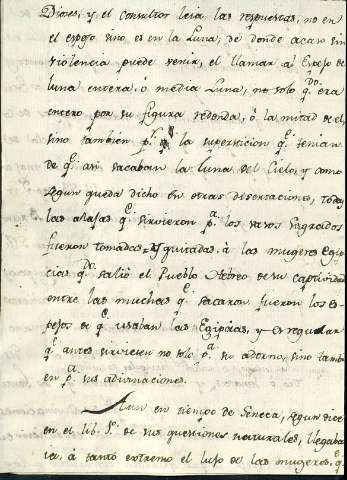 Dioses, y el consultor leia las respuestas, no en
el espejo sino es en la Luna, de donde acaso sin
violencia puede venir, el llamar al Espejo de
luna entera, ó media Luna, no solo qdo. era
entero por su figura redonda, ó la mitad de el,
sino tambien pr. la supersticion qe. tenian
de qe. asi sacaban la luna del Cielo, y como
segun queda dicho en otras disertaciones, todas
las alajas qe. sirvieron pa. los vasos sagrados
fueron tomadas, y quitadas. á las mugeres Egip
cias qdo. salió el Pueblo Hebreo de su captividad
entre las muchas qe. sacaron fueron los es-
pejos de qe. usaban las Egipcias, y es regular
qe. antes sirviesen no solo pa. su adorno, sino tambi
en pa. sus adivinaciones.
Aun en tiempo de Seneca, segun dice
en el lib. 1o. de sus questiones naturales, llegaba
ia. á tanto extremo el lujo de las mugeres. qe.